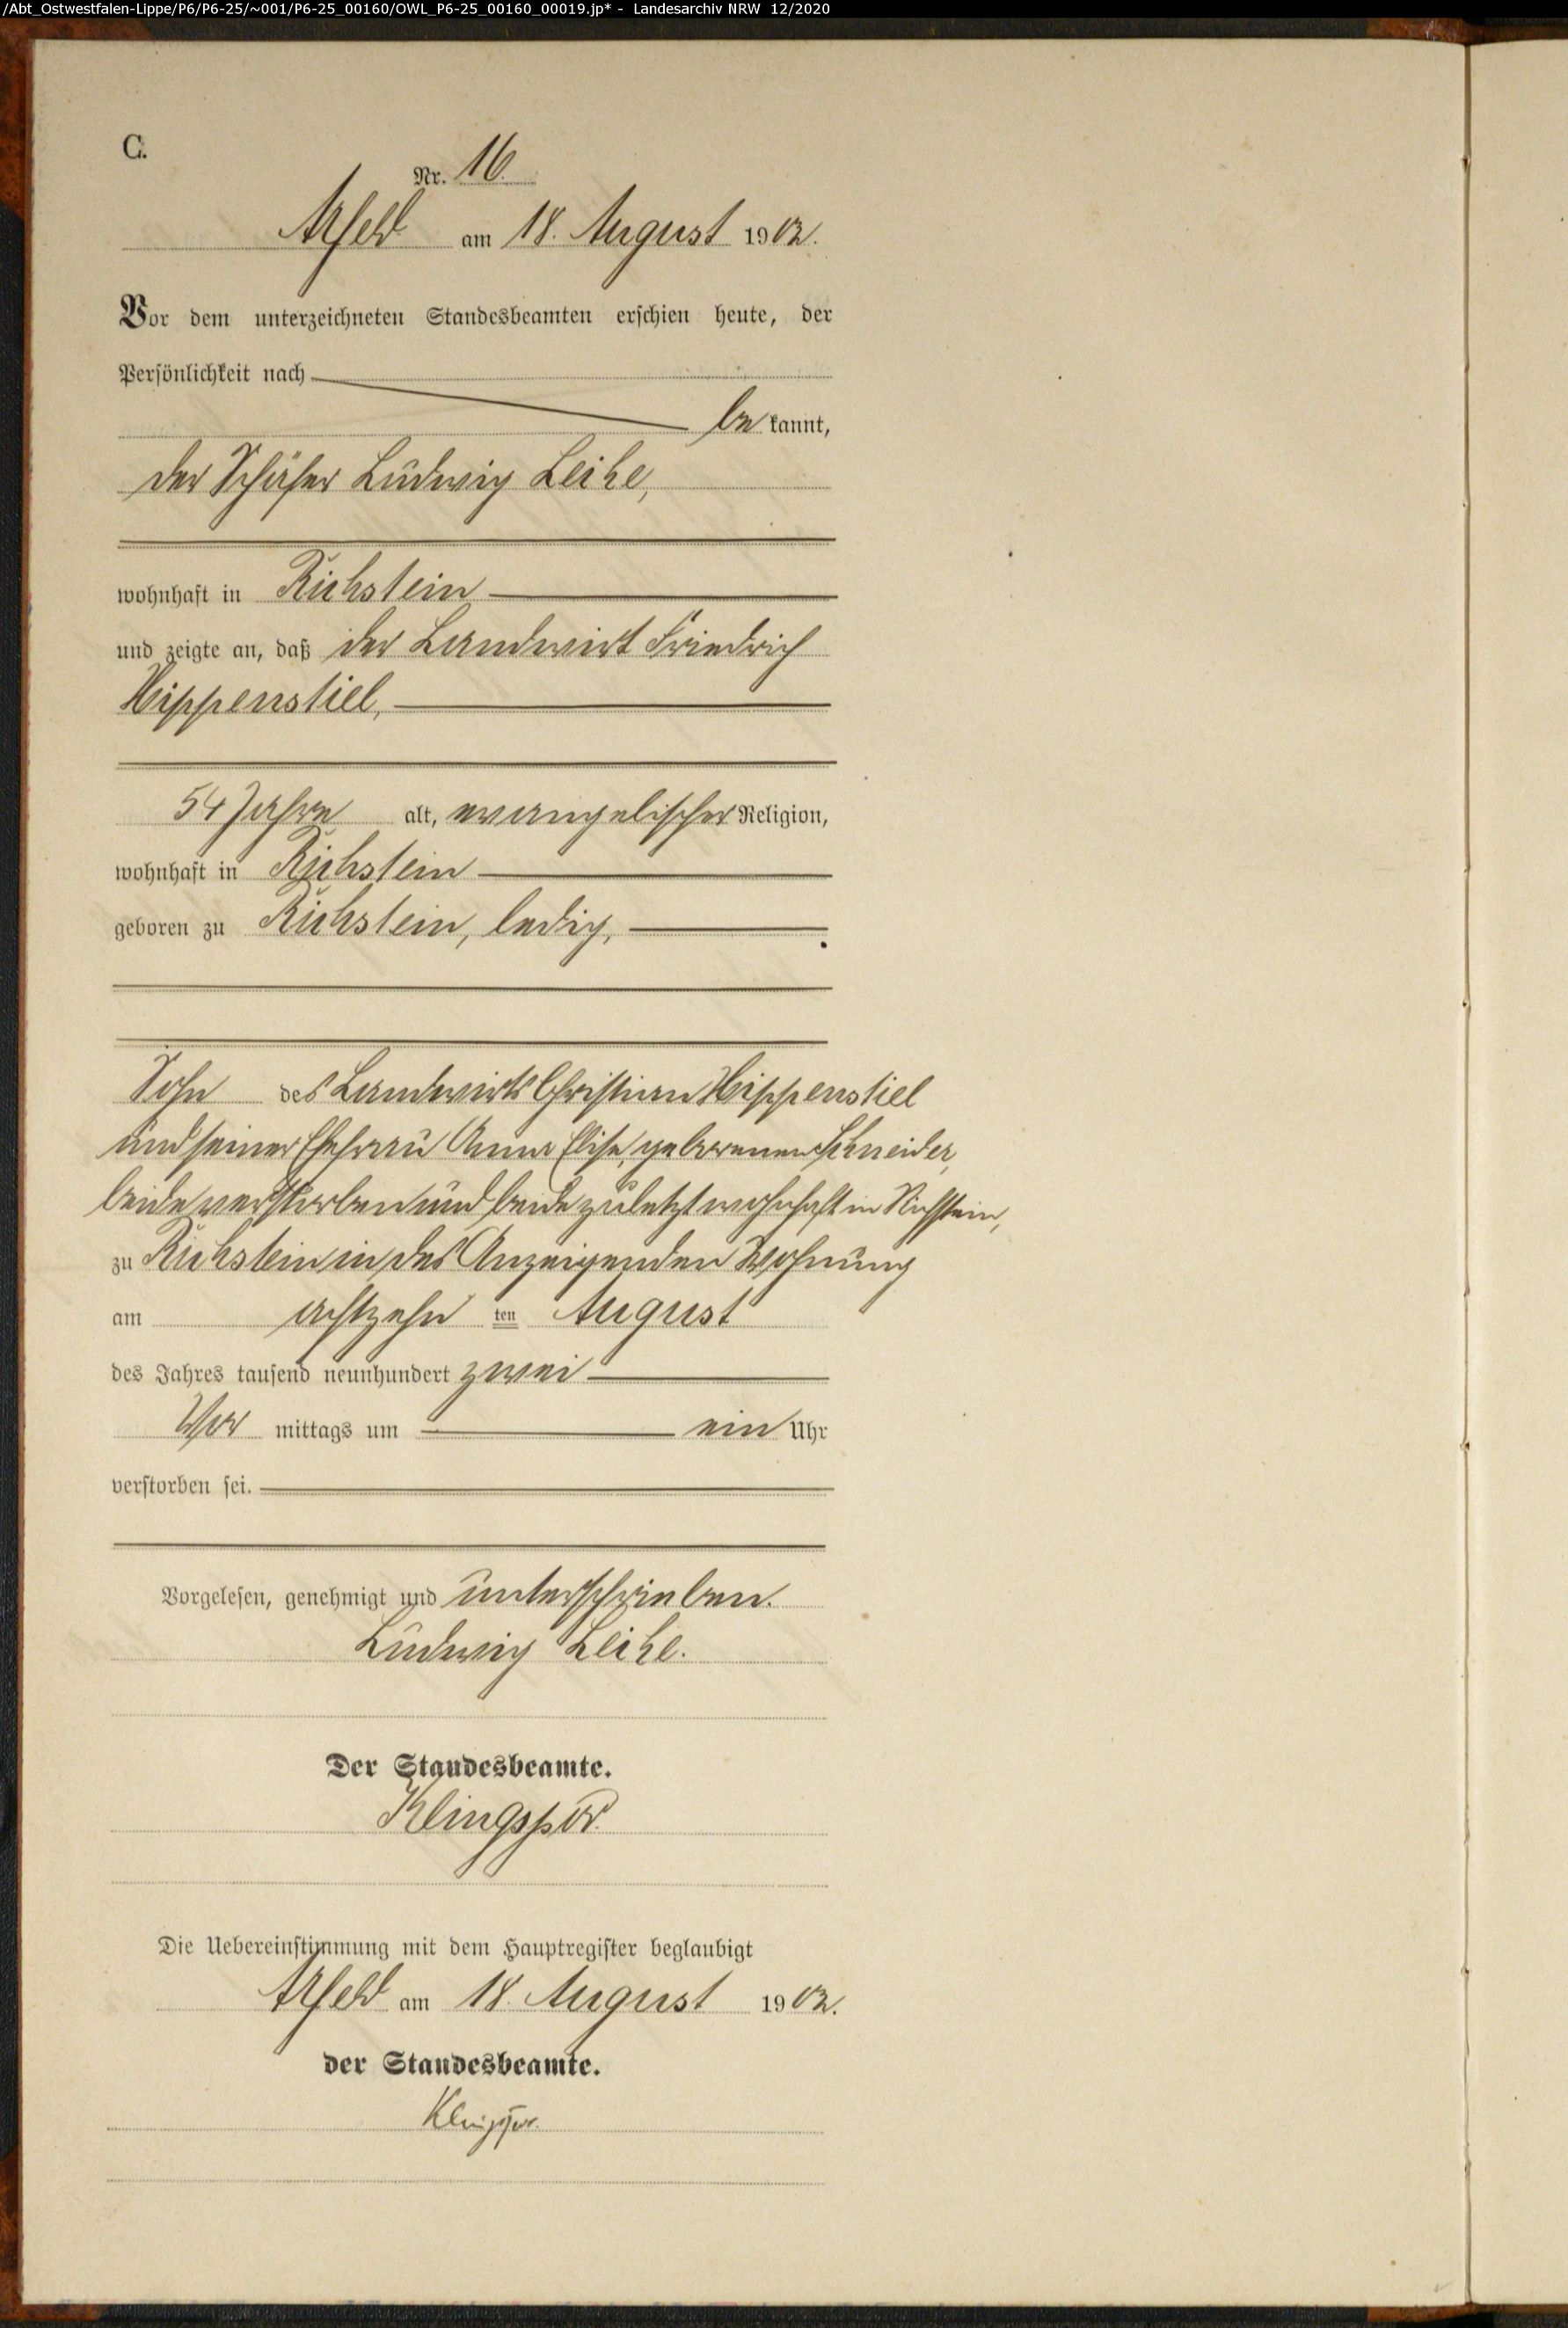 /Abt_Ostwestfalen-Lippe/P6/P6-25/~001/P6-25_00160/OWL_P6-25_00160_00019.jp* - Landesarchiv NRW 12/2020
C.
Nr. 16.
Arfeld am 18. August 1902.
Vor dem unterzeichneten Standesbeamten erschien heute, der
Persönlichkeit nach
be kannt,
der Schäfer Ludwig Leike,
wohnhaft in Richstein
und zeigte an, daß der Landwirt Friedrich
Hippenstiel,
54 Jahre alt, evangelischer Religion,
wohnhaft in Richstein
geboren zu Richstein, ledig,
Sohn des Landwirts Christian Hippenstiel
und seiner Ehefrau Anna Elise, geborenen Schneider,
beide verstorben und beide zuletzt wohnhaft in Richstein,
zu Richstein in des Anzeigenden Wohnung
am achtzehn ten August
des Jahres tausend neunhundert zwei
Vor mittags um ein Uhr
verstorben sei.
Vorgelesen, genehmigt und unterschrieben.
Ludwig Leike.
Der Standesbeamte.
Klingspor.
Die Uebereinstimmung mit dem Hauptregister beglaubigt
Arfeld am 18. August 1902.
der Standesbeamte.
Klingspor.